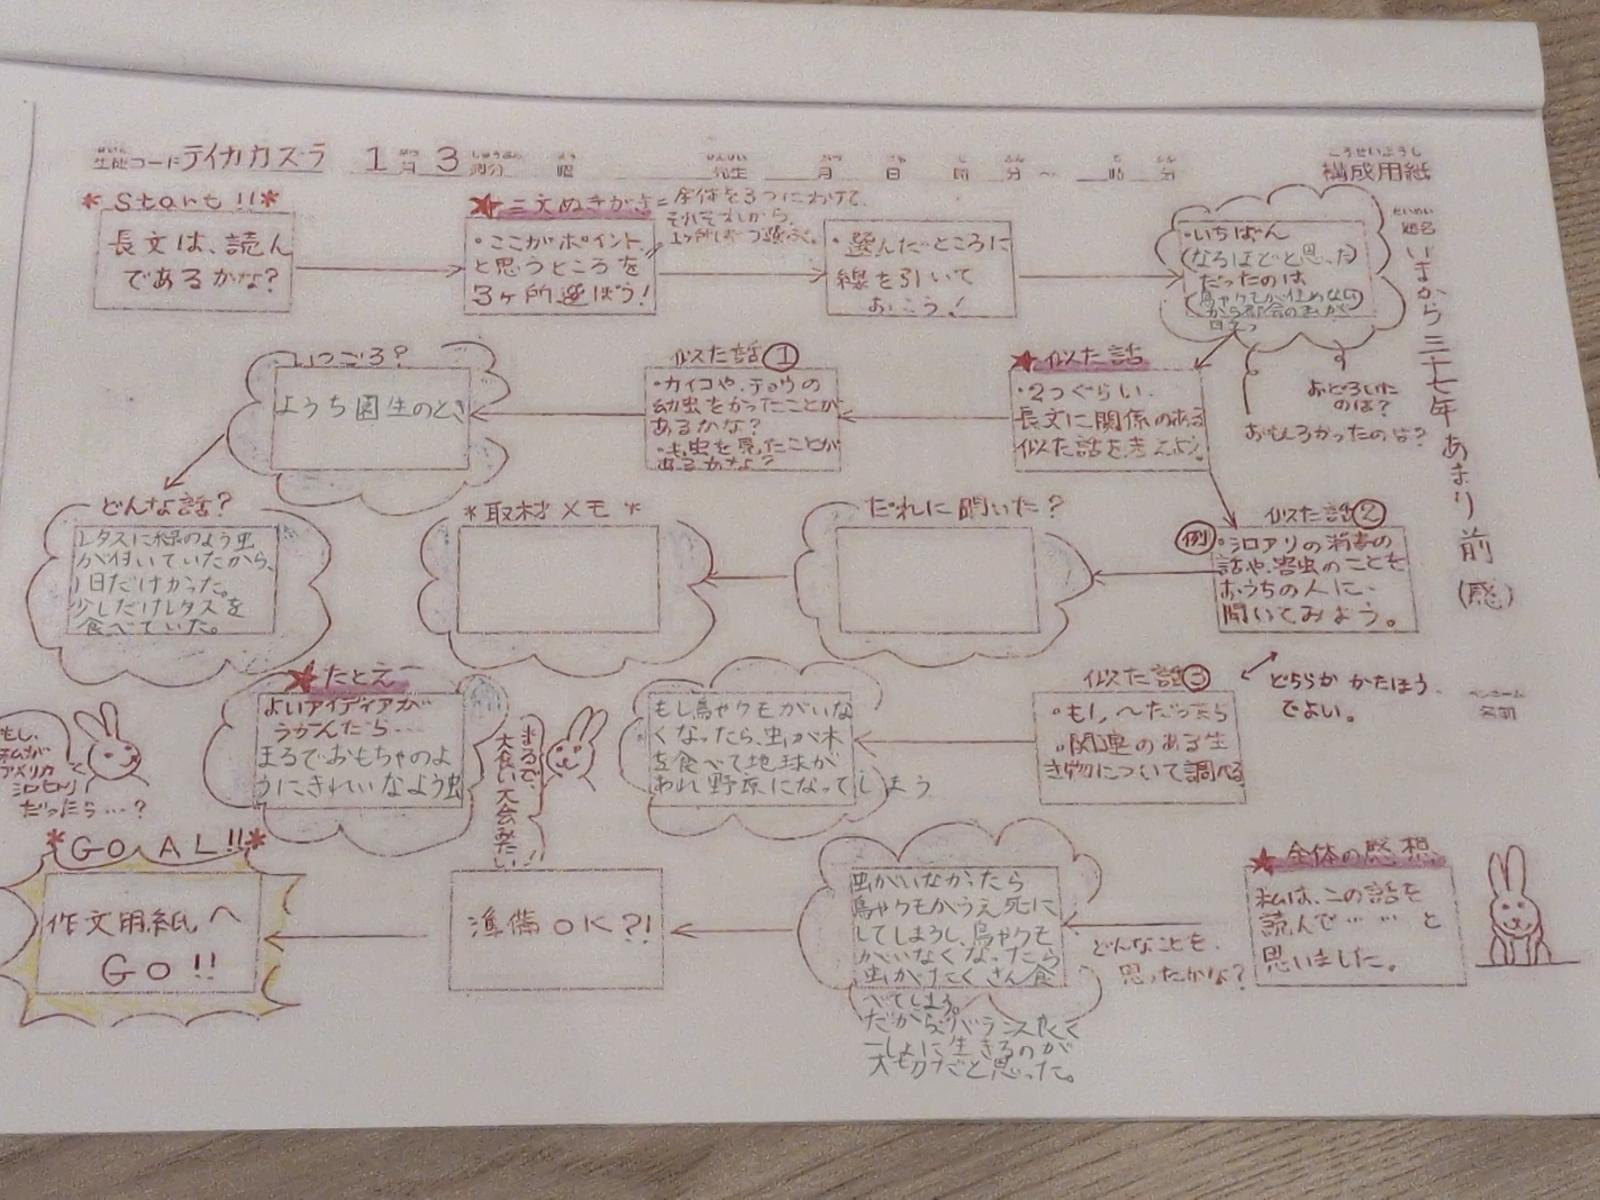 構成用紙
こうせいようし
生徒コード テイカカズラ 1月3週分 曜 先生 月 日 時 分〜 時 分
題名
だいめい
いまから三十七年あまり前(感)
ペンネーム
名前
*Start!!*
長文は、読んで
あるかな?
★三文ぬきがき=全体を3つにわけて、
それぞれから、
1ヶ所ずつ選ぶ。
・ここがポイント、
と思うところを
3ヶ所選ぼう!
・選んだところに
線を引いて
おこう!
・いちばん
(なるほどと思った)
だったのは
鳥やクモが住めない
から都会の虫が
目立つ
おどろいた
のは?
おもしろかったのは?
★似た話
・2つぐらい
長文に関係のある
似た話を考えよう。
似た話①
・カイコや、チョウの
幼虫をかったことが
あるかな?
・毛虫を見たことが
あるかな?
いつごろ?
ようち園生のとき
どんな話?
レタスに緑のよう虫
が付いていたから、
1日だけかった。
少しだけレタスを
食べていた。
似た話②
例
・シロアリの消毒の
話や、害虫のことを
おうちの人に、
聞いてみよう。
だれに聞いた?
*取材メモ*
どちらかかたほう
でよい。
似た話③
・もし〜だったら
・関連のある生
き物について調べる
もし鳥やクモがいな
くなったら、虫が木
を食べて地球が
あれ野原になってしまう
★たとえ
よいアイディアが
うかんだら…
まるでおもちゃのよ
うにきれいなよう虫
まるで、
大食い大会みたい!!
もし、
私が
アメリカ
シロヒトリ
だったら…?
★全体の感想
私は、この話を
読んで……と
思いました。
どんなことを
思ったかな?
虫がいなかったら
鳥やクモがうえ死に
してしまうし、鳥やクモ
がいなくなったら
虫がたくさん食
べてしまう。
だからバランス良く
一しょに生きるのが
大切だと思った。
準備OK?!
*GOAL!!*
作文用紙へ
GO!!